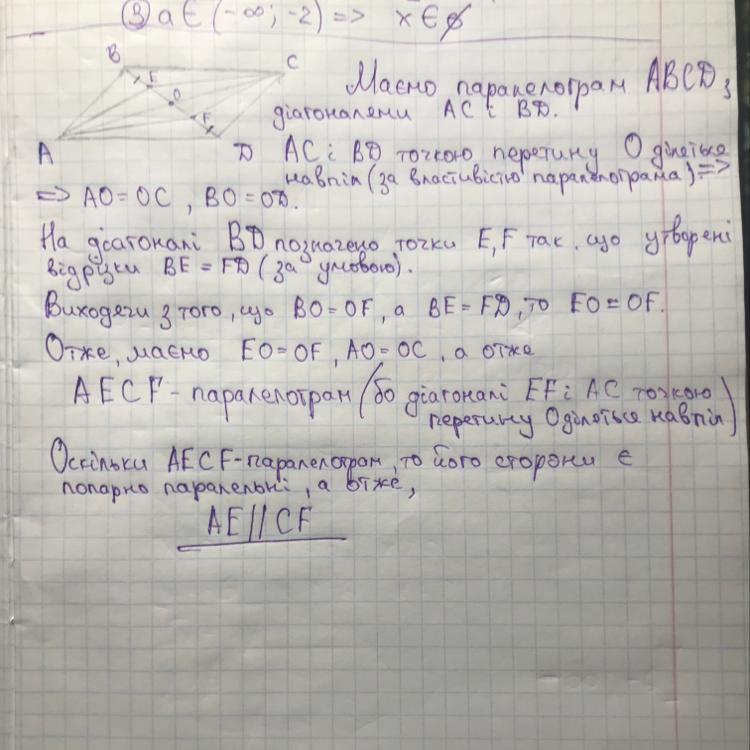 ③ a ∈ (-∞; -2) => x ∈ ∅
B
C
E
O
F
A
D
Маємо паралелограм ABCD з
діагоналями AC і BD.
AC і BD точкою перетину O діляться
навпіл (за властивістю паралелограма) =>
=> AO = OC, BO = OD.
На діагоналі BD позначено точки E, F так, що утворені
відрізки BE = FD (за умовою).
Виходячи з того, що BO = OF, а BE = FD, то EO = OF.
Отже, маємо EO = OF, AO = OC, а отже
AECF - паралелограм (бо діагоналі EF і AC точкою
перетину O діляться навпіл)
Оскільки AECF - паралелограм, то його сторони є
попарно паралельні, а отже,
AE || CF